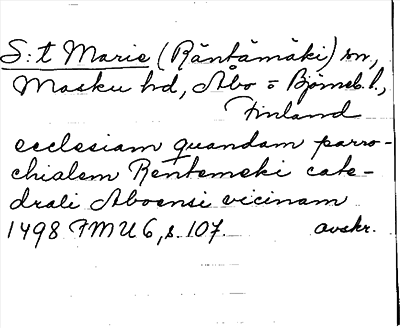 S:t Marie (Räntämäki) sn,
Masku hd, Åbo = Björneb. l.,
Finland
ecclesiam quandam parro-
chialem Rentemeki cate-
drali Aboensi vicinam
1498 FMU 6, s. 107. avskr.